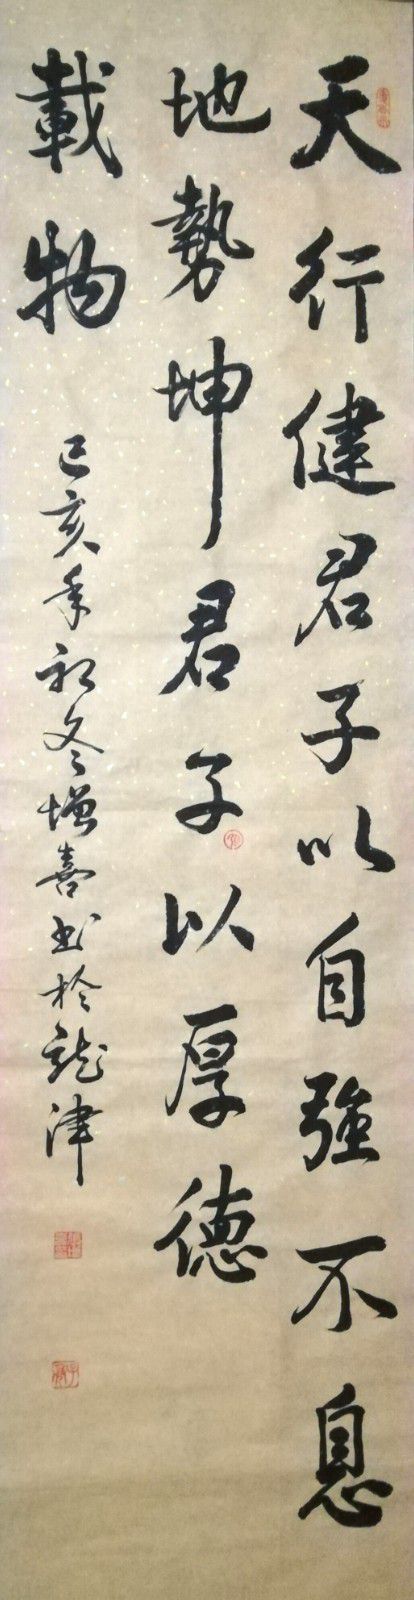 天行健君子以自強不息
地勢坤君子以厚德
載物
己亥年初冬增喜书於龍津